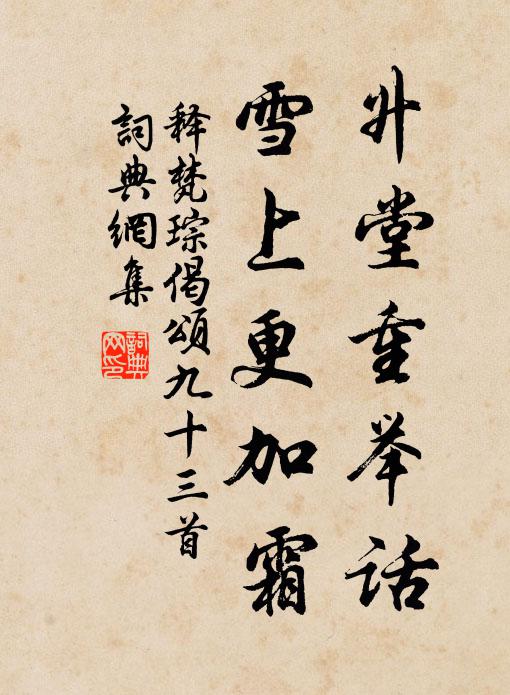 升堂重举话
雪上更加霜
释梵琮偈頌九十三首
詞典網集
詞典网印